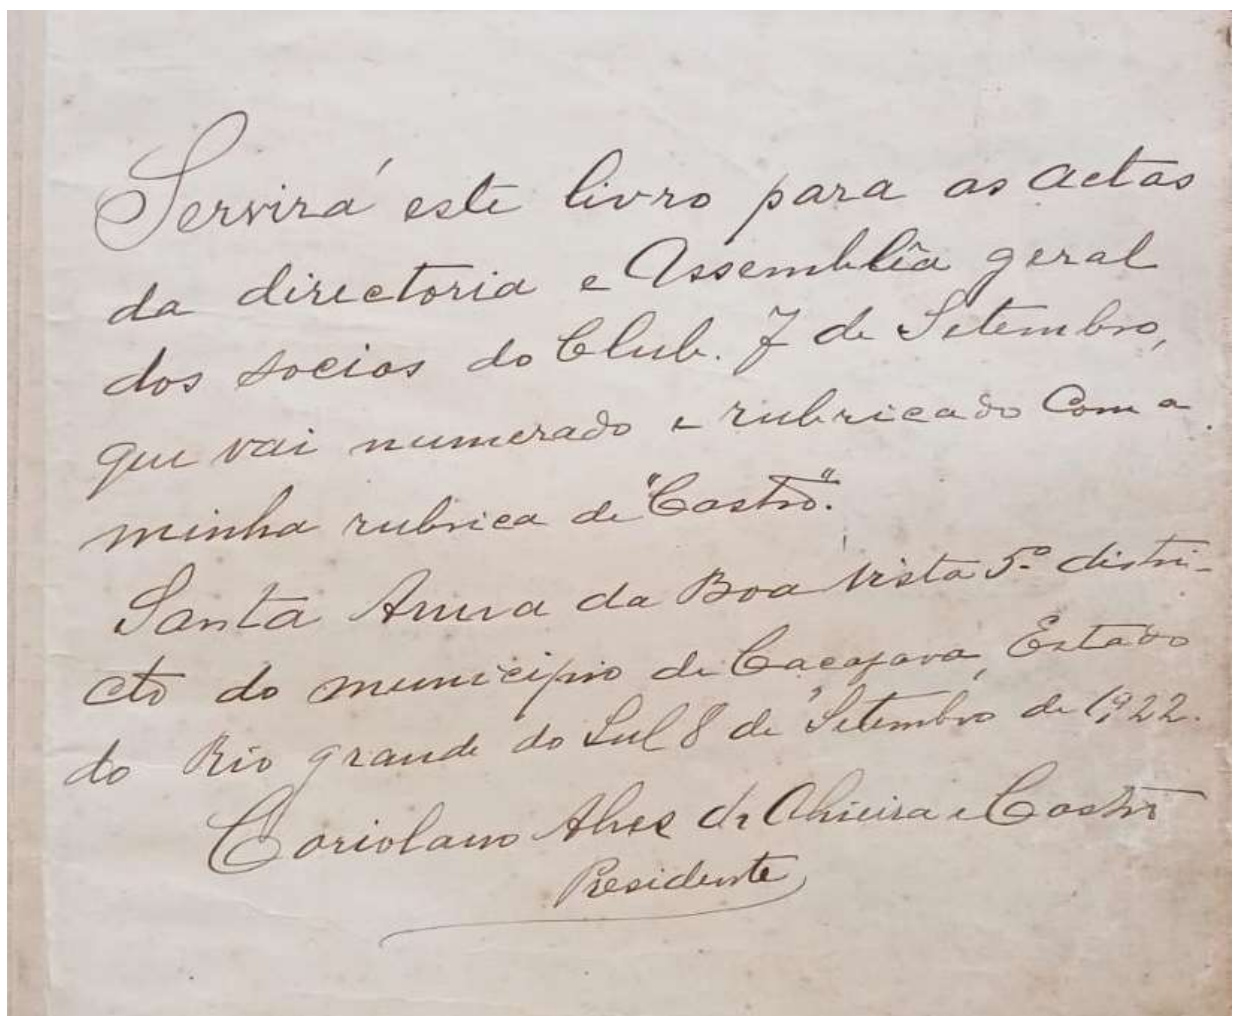 Servirá este livro para as actas
da directoria e Assemblêa geral
dos socios do Club. 7 de Setembro,
que vai numerado e rubricado com a
minha rubrica de "Castro".
Santa Anna da Boa Vista 5º distri-
cto do municipio de Caçapava, Estado
do Rio grande do Sul 8 de Setembro de 1922.
Coriolano Alves de Oliveira e Castro
Presidente